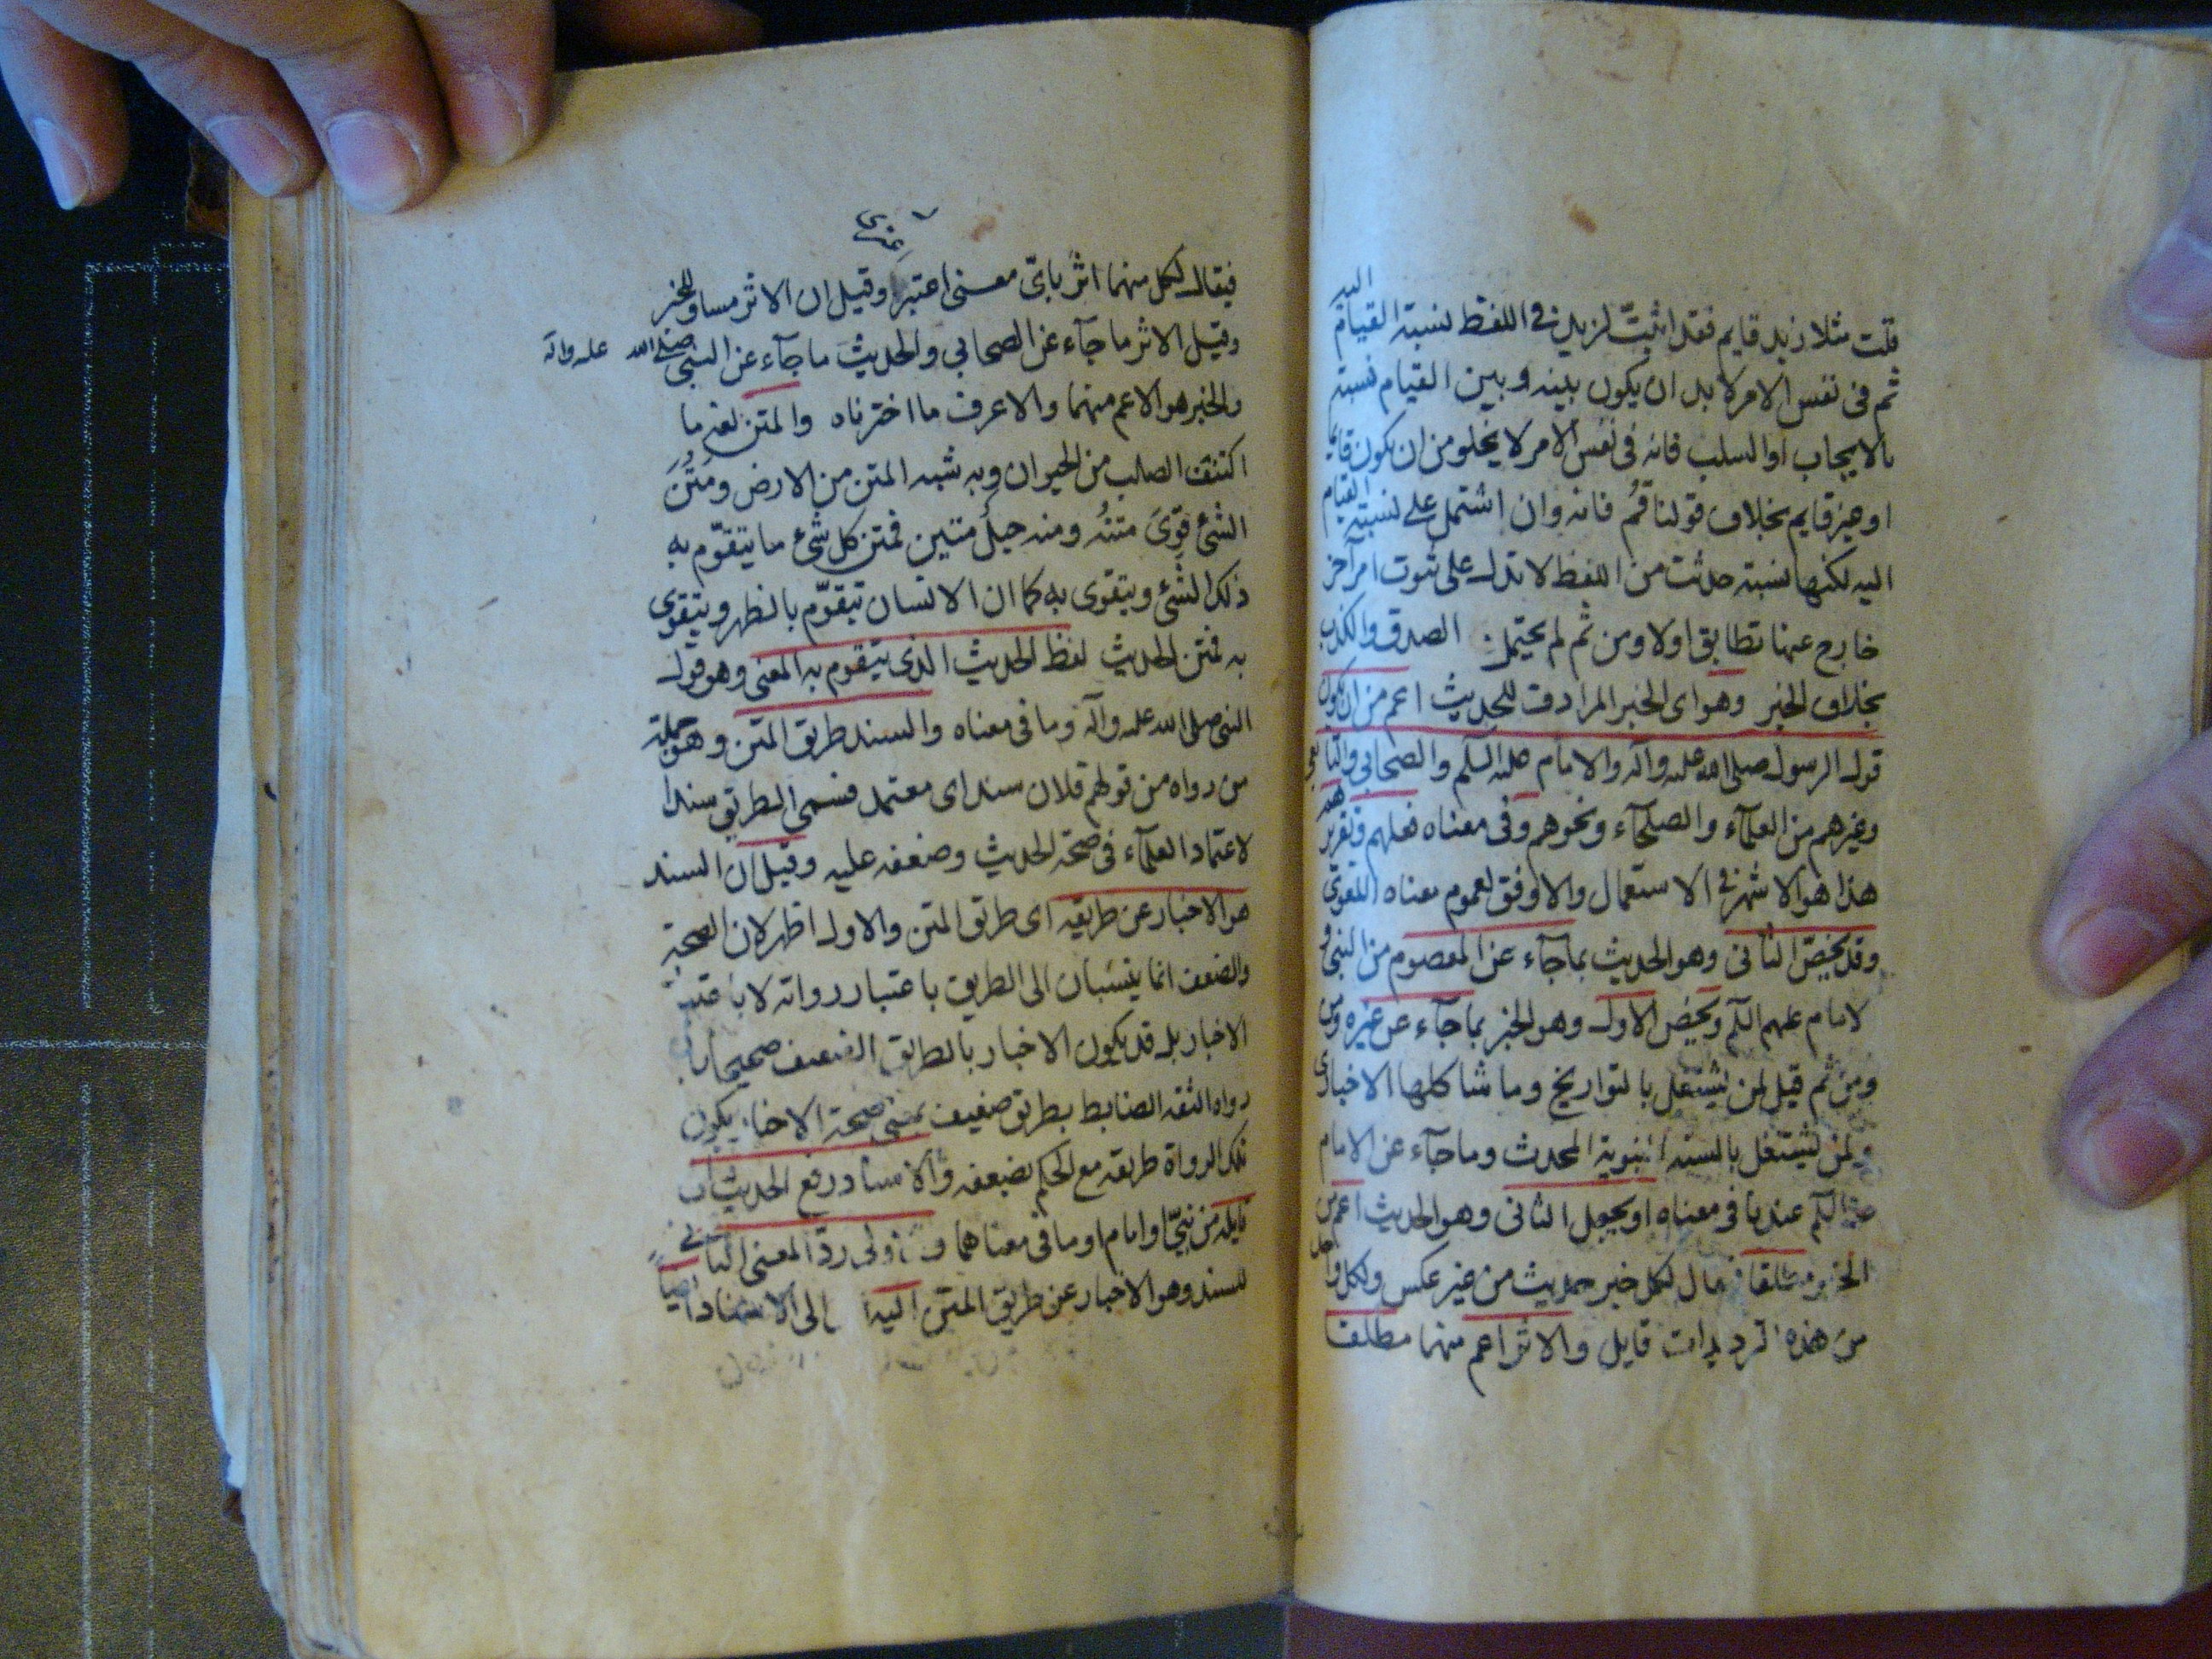 قلت مثلا زيد قايم فقد اثبتّ لزيد في اللفظ نسبة القيام اليه
ثم في نفس الامر لا بد ان يكون بينه وبين القيام نسبة
بالايجاب او السلب فانه في نفس الامر لا يخلو من ان يكون قايما
او غير قايم بخلاف قولنا قُم فانه وان اشتمل على نسبة القيام
اليه لكنها نسبة حدثت من اللفظ لا تدل على ثبوت امر آخر
خارج عنها تطابق اولا ومن ثم لم يحتمل الصدق والكذب
بخلاف الخبر وهو اى الخبر المرادف للحديث اعم من ان يكون
قول الرسول صلى الله عليه وآله والامام عليه السلم والصحابي والتابعي
وغيرهم من العلمآء والصلحآء ونحوهم وفي معناه فعلهم وتقريرهم
هذا هو الاشهر في الاستعمال والاوفق لعموم معناه اللغوي
وقد يخصّ الثاني وهو الحديث بما جآء عن المعصوم من النبي و
الامام عليهم السلم ويخص الاول وهو الخبر بما جآء عن غيره ومن
ومن ثم قيل لمن يشتغل بالتواريخ وما شاكلها الاخباري
ولمن يشتغل بالسنة النبوية المحدث وما جآء عن الامام
عليه السلم عندنا في معناه او يجعل الثاني وهو الحديث اعم من
الخبر مطلقا فيقال لكل خبر حديث من غير عكس ولكل واحد
من هذه الترديدات قايل والاثر اعم منهما مطلقا
فيقال لكل منهما اثر باىّ معنى اعتبر وقيل ان الاثر مساو للخبر
وقيل الاثر ما جآء عن الصحابي والحديث ما جآء عن النبي صلى الله عليه وآله
والخبر هو الاعم منهما والاعرف ما اخترناه والمتن لغة ما
اكتنف الصلب من الحيوان وبه شبه المتن من الارض ومَتُنَ
الشئ قوِىَ متنُه ومنه حبلٌ متين فمتن كل شئ ما يتقوّم به
ذلك الشئ ويتقوى به كما ان الانسان يتقوّم بالظهر ويتقوى
به فمتن الحديث لفظ الحديث الذي يتقوم به المعنى وهو قول
النبي صلى الله عليه وآله وما في معناه والسند طريق المتن وهو جملة
من رواه من قولهم فلان سند اى معتمد فسمى الطريق سندا
لاعتماد العلمآء في صحة الحديث وضعفه عليه وقيل ان السند
هو الاخبار عن طريقه اى طريق المتن والاول اظهر لان الصحة
والضعف انما ينسبان الى الطريق باعتبار رواته لا باعتبار
الاخبار بل قد يكون الاخبار بالطريق الضعيف صحيحا
رواه الثقة الضابط بطريق ضعيف بمعنى صحة الاخبار يكون
تلك الرواة طريقه مع الحكم بضعفه والاسناد رفع الحديث الى
قايله من نبىّ او امام او ما في معناهما والاولى ردّ المعنى الثاني
للسند وهو الاخبار عن طريق المتن اليه الى الاسناد ايضاً